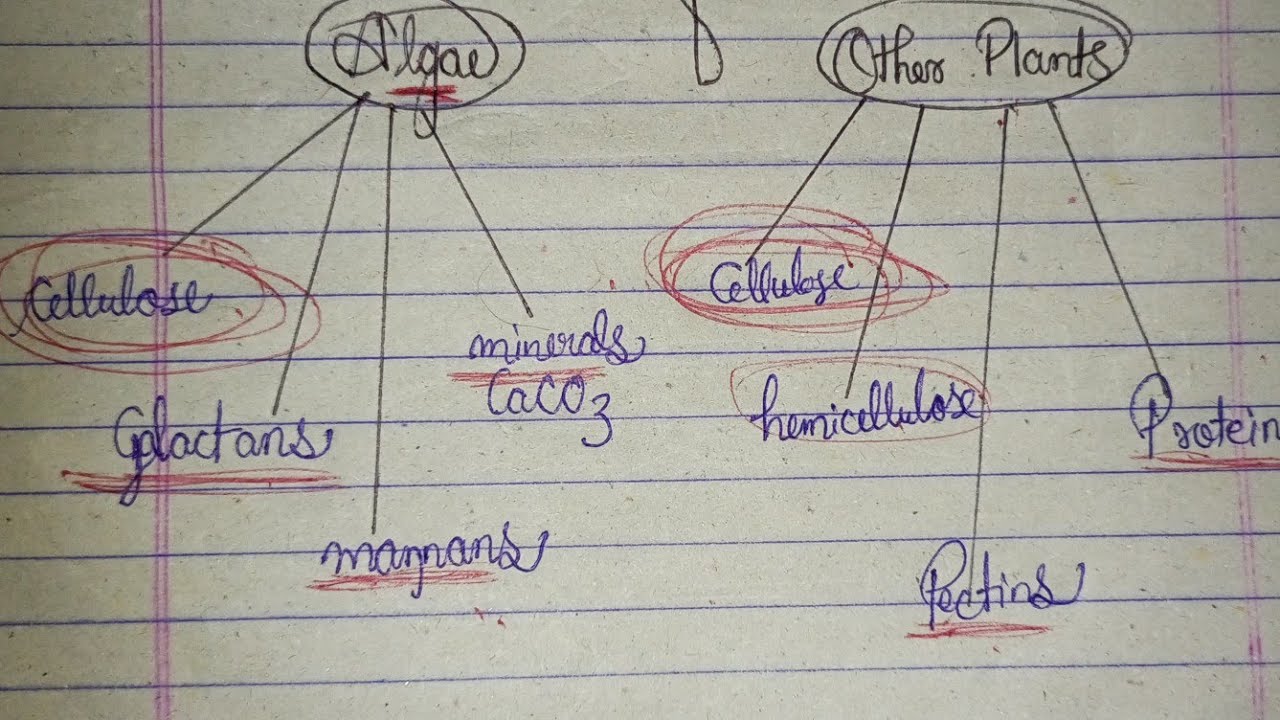 Algae
Other Plants
Cellulose
Cellulose
minerals
CaCO3
hemicellulose
Galactans
Protein
mannans
Pectins